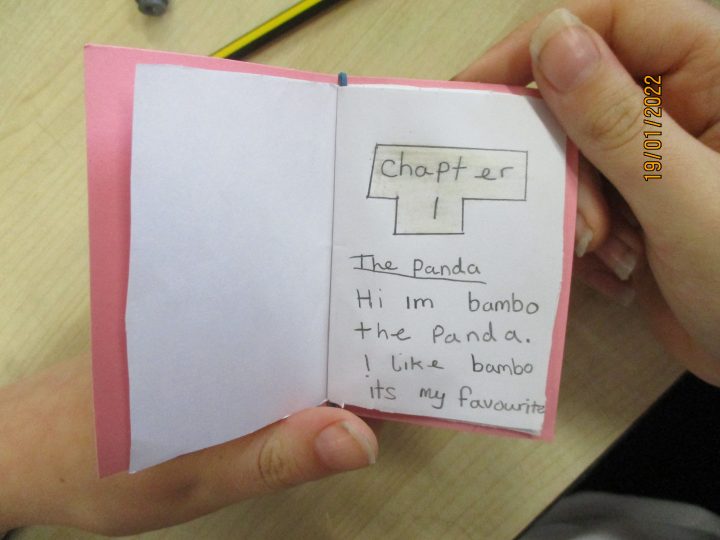 Chapter
1
The Panda
Hi im bambo
the Panda.
I like bambo
its my favourite
19/01/2022